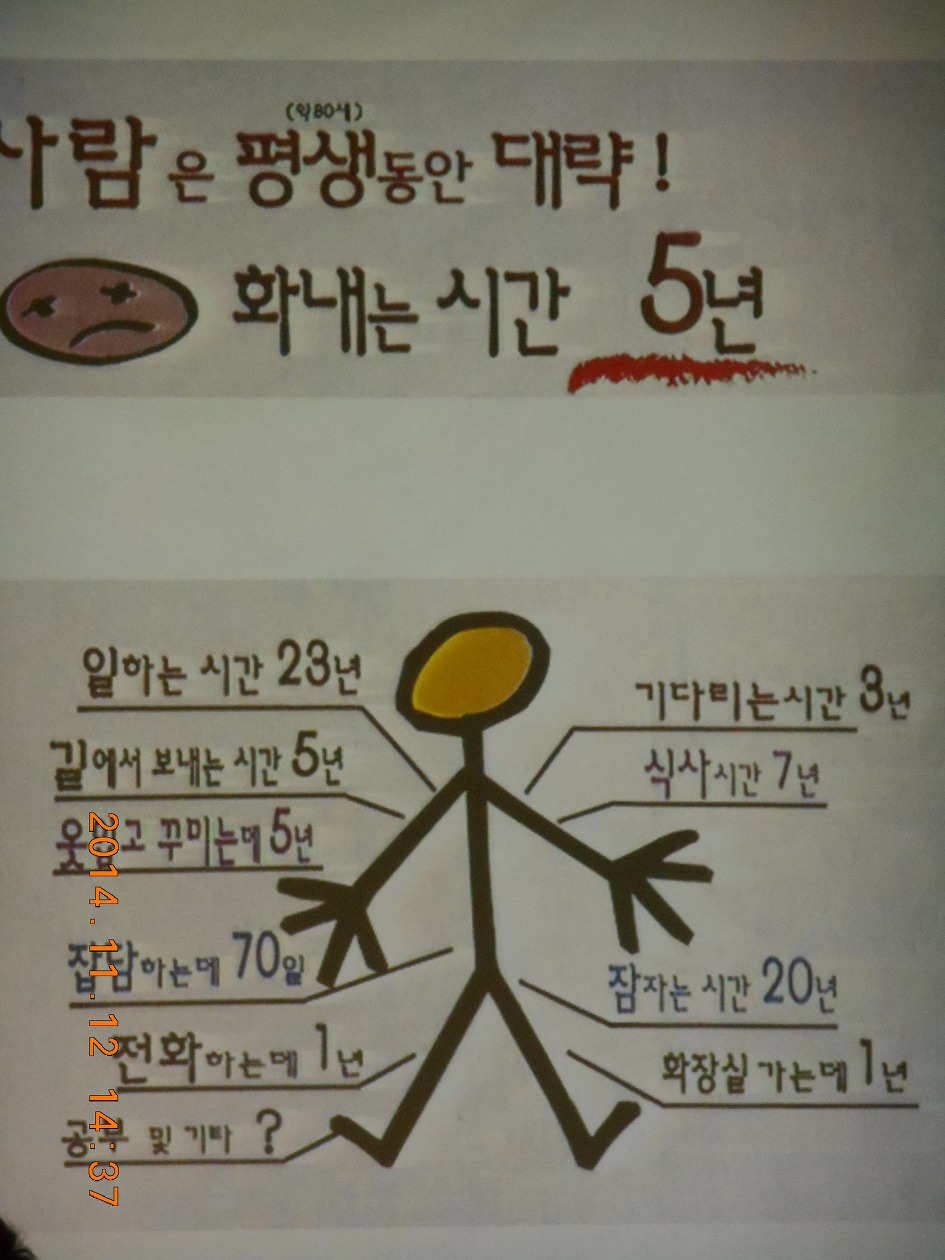 (약80세)
사람은 평생동안 대략!
화내는 시간 5년
일하는 시간 23년
기다리는시간 3년
길에서 보내는 시간 5년
식사시간 7년
옷입고 꾸미는데 5년
잡담하는데 70일
잠자는 시간 20년
전화하는데 1년
화장실 가는데 1년
공부 및 기타 ?
2014.11.12 14:37